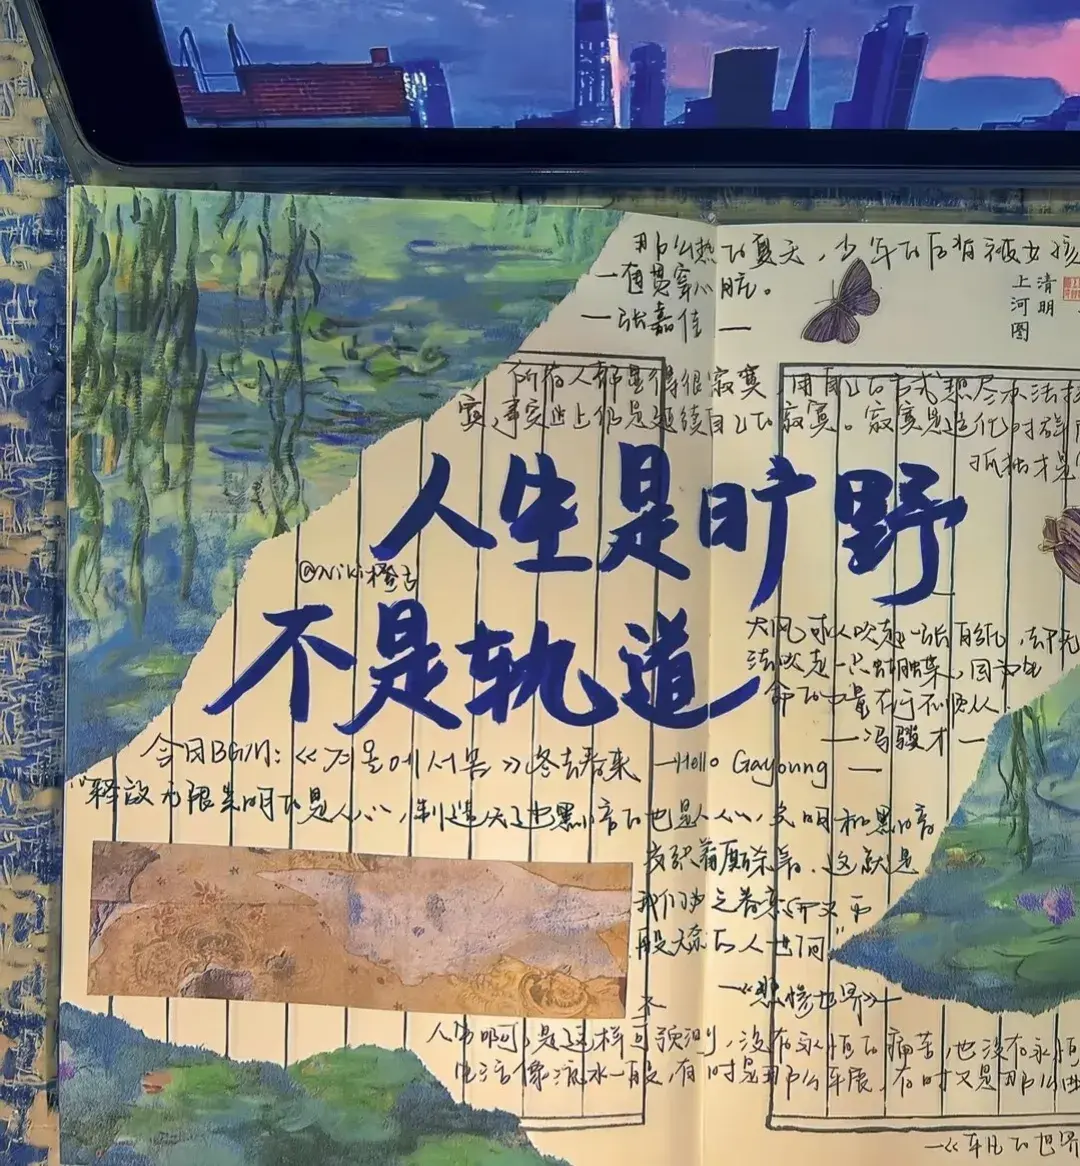 那么热的夏天，少年的后背被女孩
一直贯穿心脏。
—张嘉佳—
上清
河明
图
所有人都显得很寂寞，用自己的方式想尽办法排
寞，事实上仍是延续自己的寂寞。寂寞是造化对群
孤独才是
人生是旷野
@Niki橙子
不是轨道
大风可以吹起一张白纸，却无
法吹走一只蝴蝶，因为生
命的力量在于不顺从
—冯骥才—
今日BGM：《겨울에서 봄》冬去春来 —Hello Gayoung—
"释放无限光明的是人心，制造无边黑暗的也是人心，光明和黑暗
交织着厮杀着，这就是
我们为之眷恋而又万
般无奈的人世间"
—《悲惨世界》—
人生啊，是这样不可预测，没有永恒的痛苦，也没有永恒
生活像流水一般，有时是那么平展，有时又是那么曲
—《平凡的世界